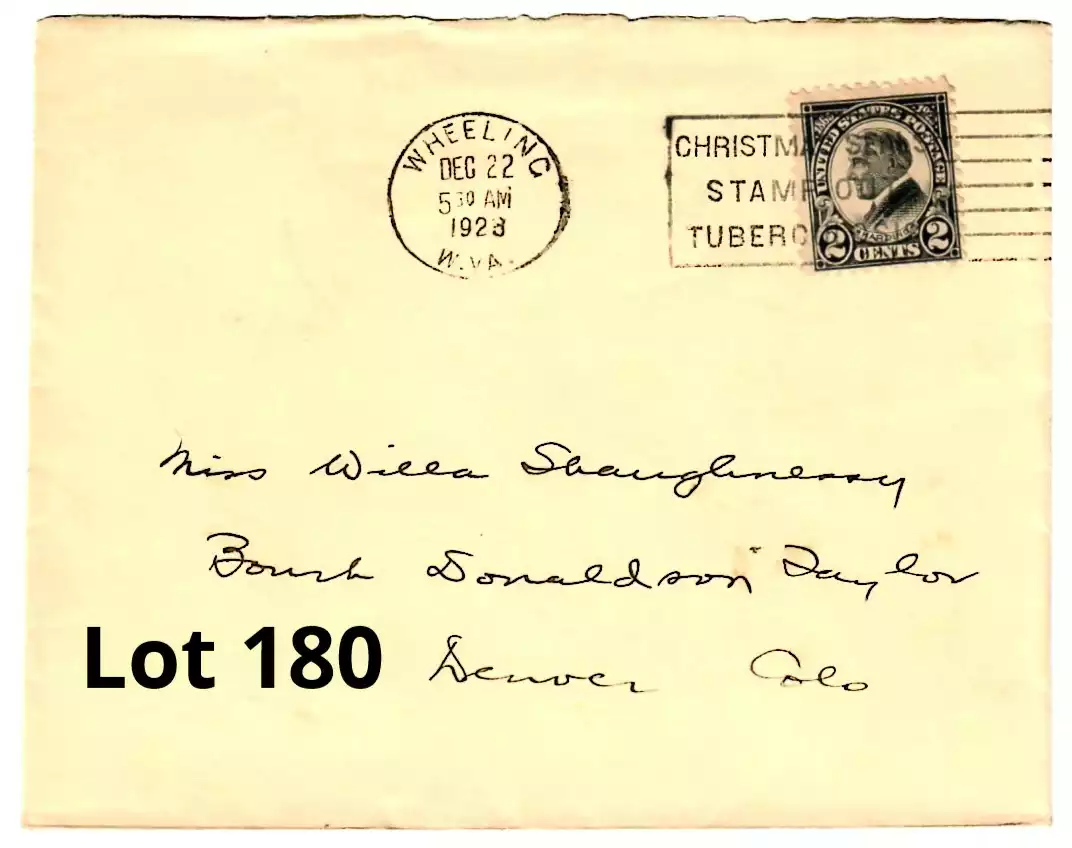 WHEELING
DEC 22
5 30 AM
1923
W.VA.
CHRISTMAS SEALS
STAMP OUT
TUBERC
UNITED STATES POSTAGE
2 CENTS 2
Miss Willa Shaughnessy
Donaldson Taylor
Lot 180
Denver Colo